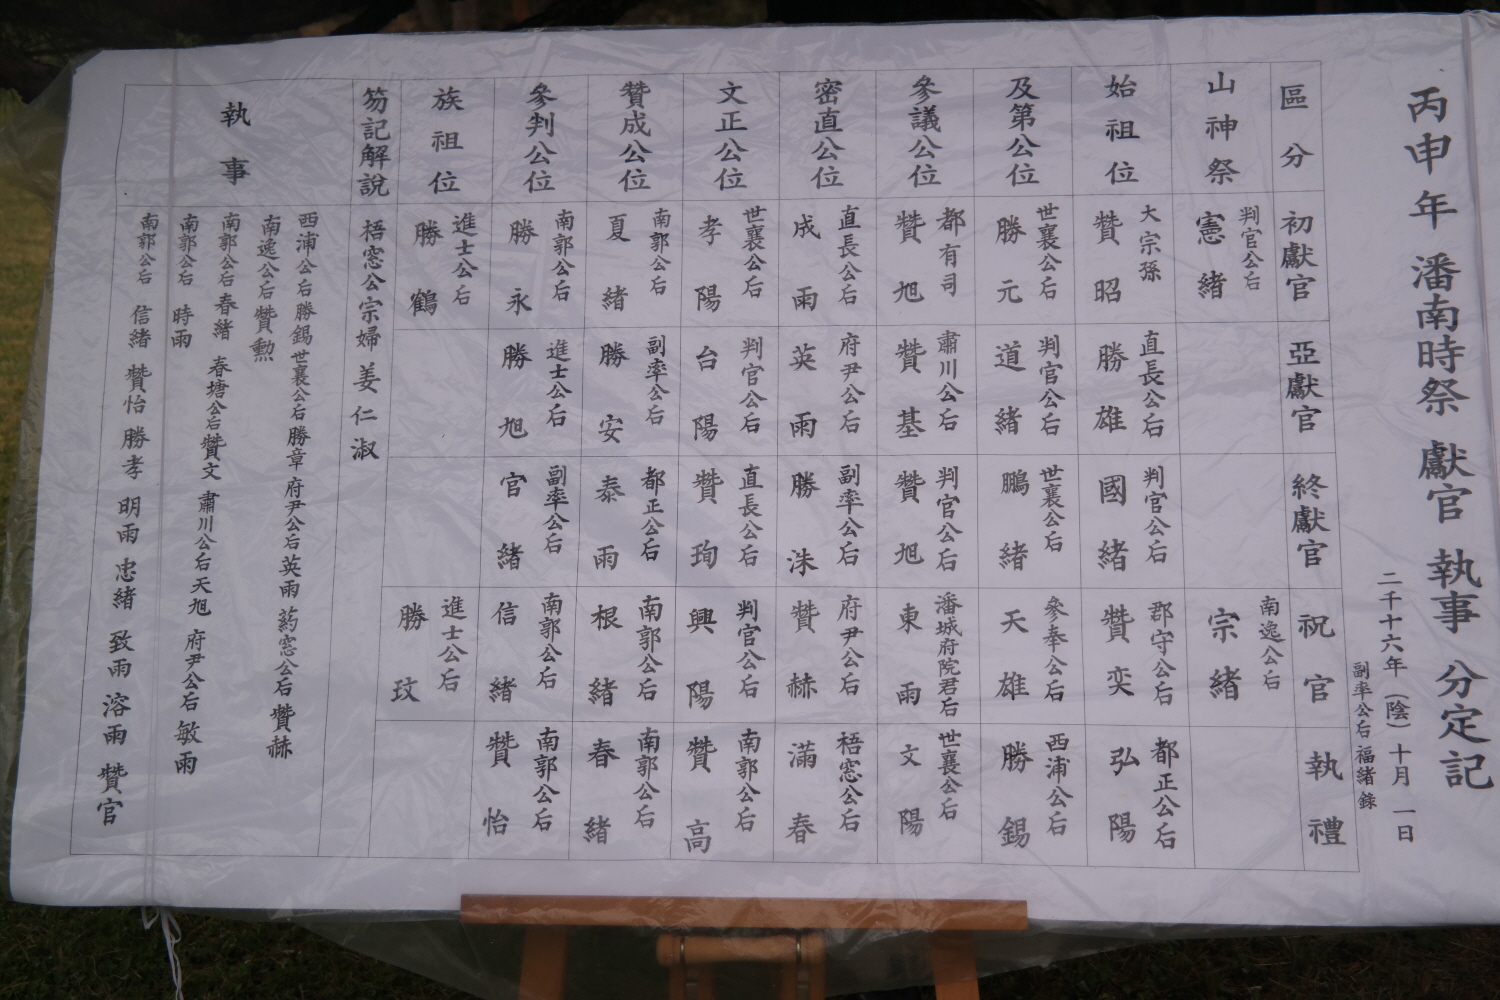 丙申年 潘南時祭 獻官 執事 分定記
二千十六年 (陰) 十月 一日
副率公后 福緖 錄
區分 初獻官 亞獻官 終獻官 祝官 執禮
山神祭 判官公后 憲緖 南逸公后 宗緖
始祖位 大宗孫 贊昭 直長公后 勝雄 判官公后 國緖 郡守公后 贊奕 都正公后 弘陽
及第公位 世襄公后 勝元 判官公后 道緖 世襄公后 鵬緖 參奉公后 天雄 西浦公后 勝錫
參議公位 都有司 贊旭 肅川公后 贊基 判官公后 贊旭 潘城府院君后 東雨 世襄公后 文陽
密直公位 直長公后 成雨 府尹公后 英雨 副率公后 勝洙 府尹公后 贊赫 梧窓公后 滿春
文正公位 世襄公后 孝陽 判官公后 台陽 直長公后 贊珣 判官公后 興陽 南郭公后 贊高
贊成公位 南郭公后 夏緖 副率公后 勝安 都正公后 泰雨 南郭公后 根緖 南郭公后 春緖
參判公位 南郭公后 勝永 進士公后 勝旭 副率公后 官緖 南郭公后 信緖 南郭公后 贊怡
族祖位 進士公后 勝鶴 進士公后 勝玟
笏記解說 梧窓公宗婦 姜仁淑
執事
西浦公后 勝錫 世襄公后 勝章 府尹公后 英雨 葯窓公后 贊赫
南逸公后 贊勲
南郭公后 春緖 春塘公后 贊文 肅川公后 天旭 府尹公后 敏雨
南郭公后 時雨
南郭公后 信緖 贊怡 勝孝 明雨 忠緖 致雨 溶雨 贊官